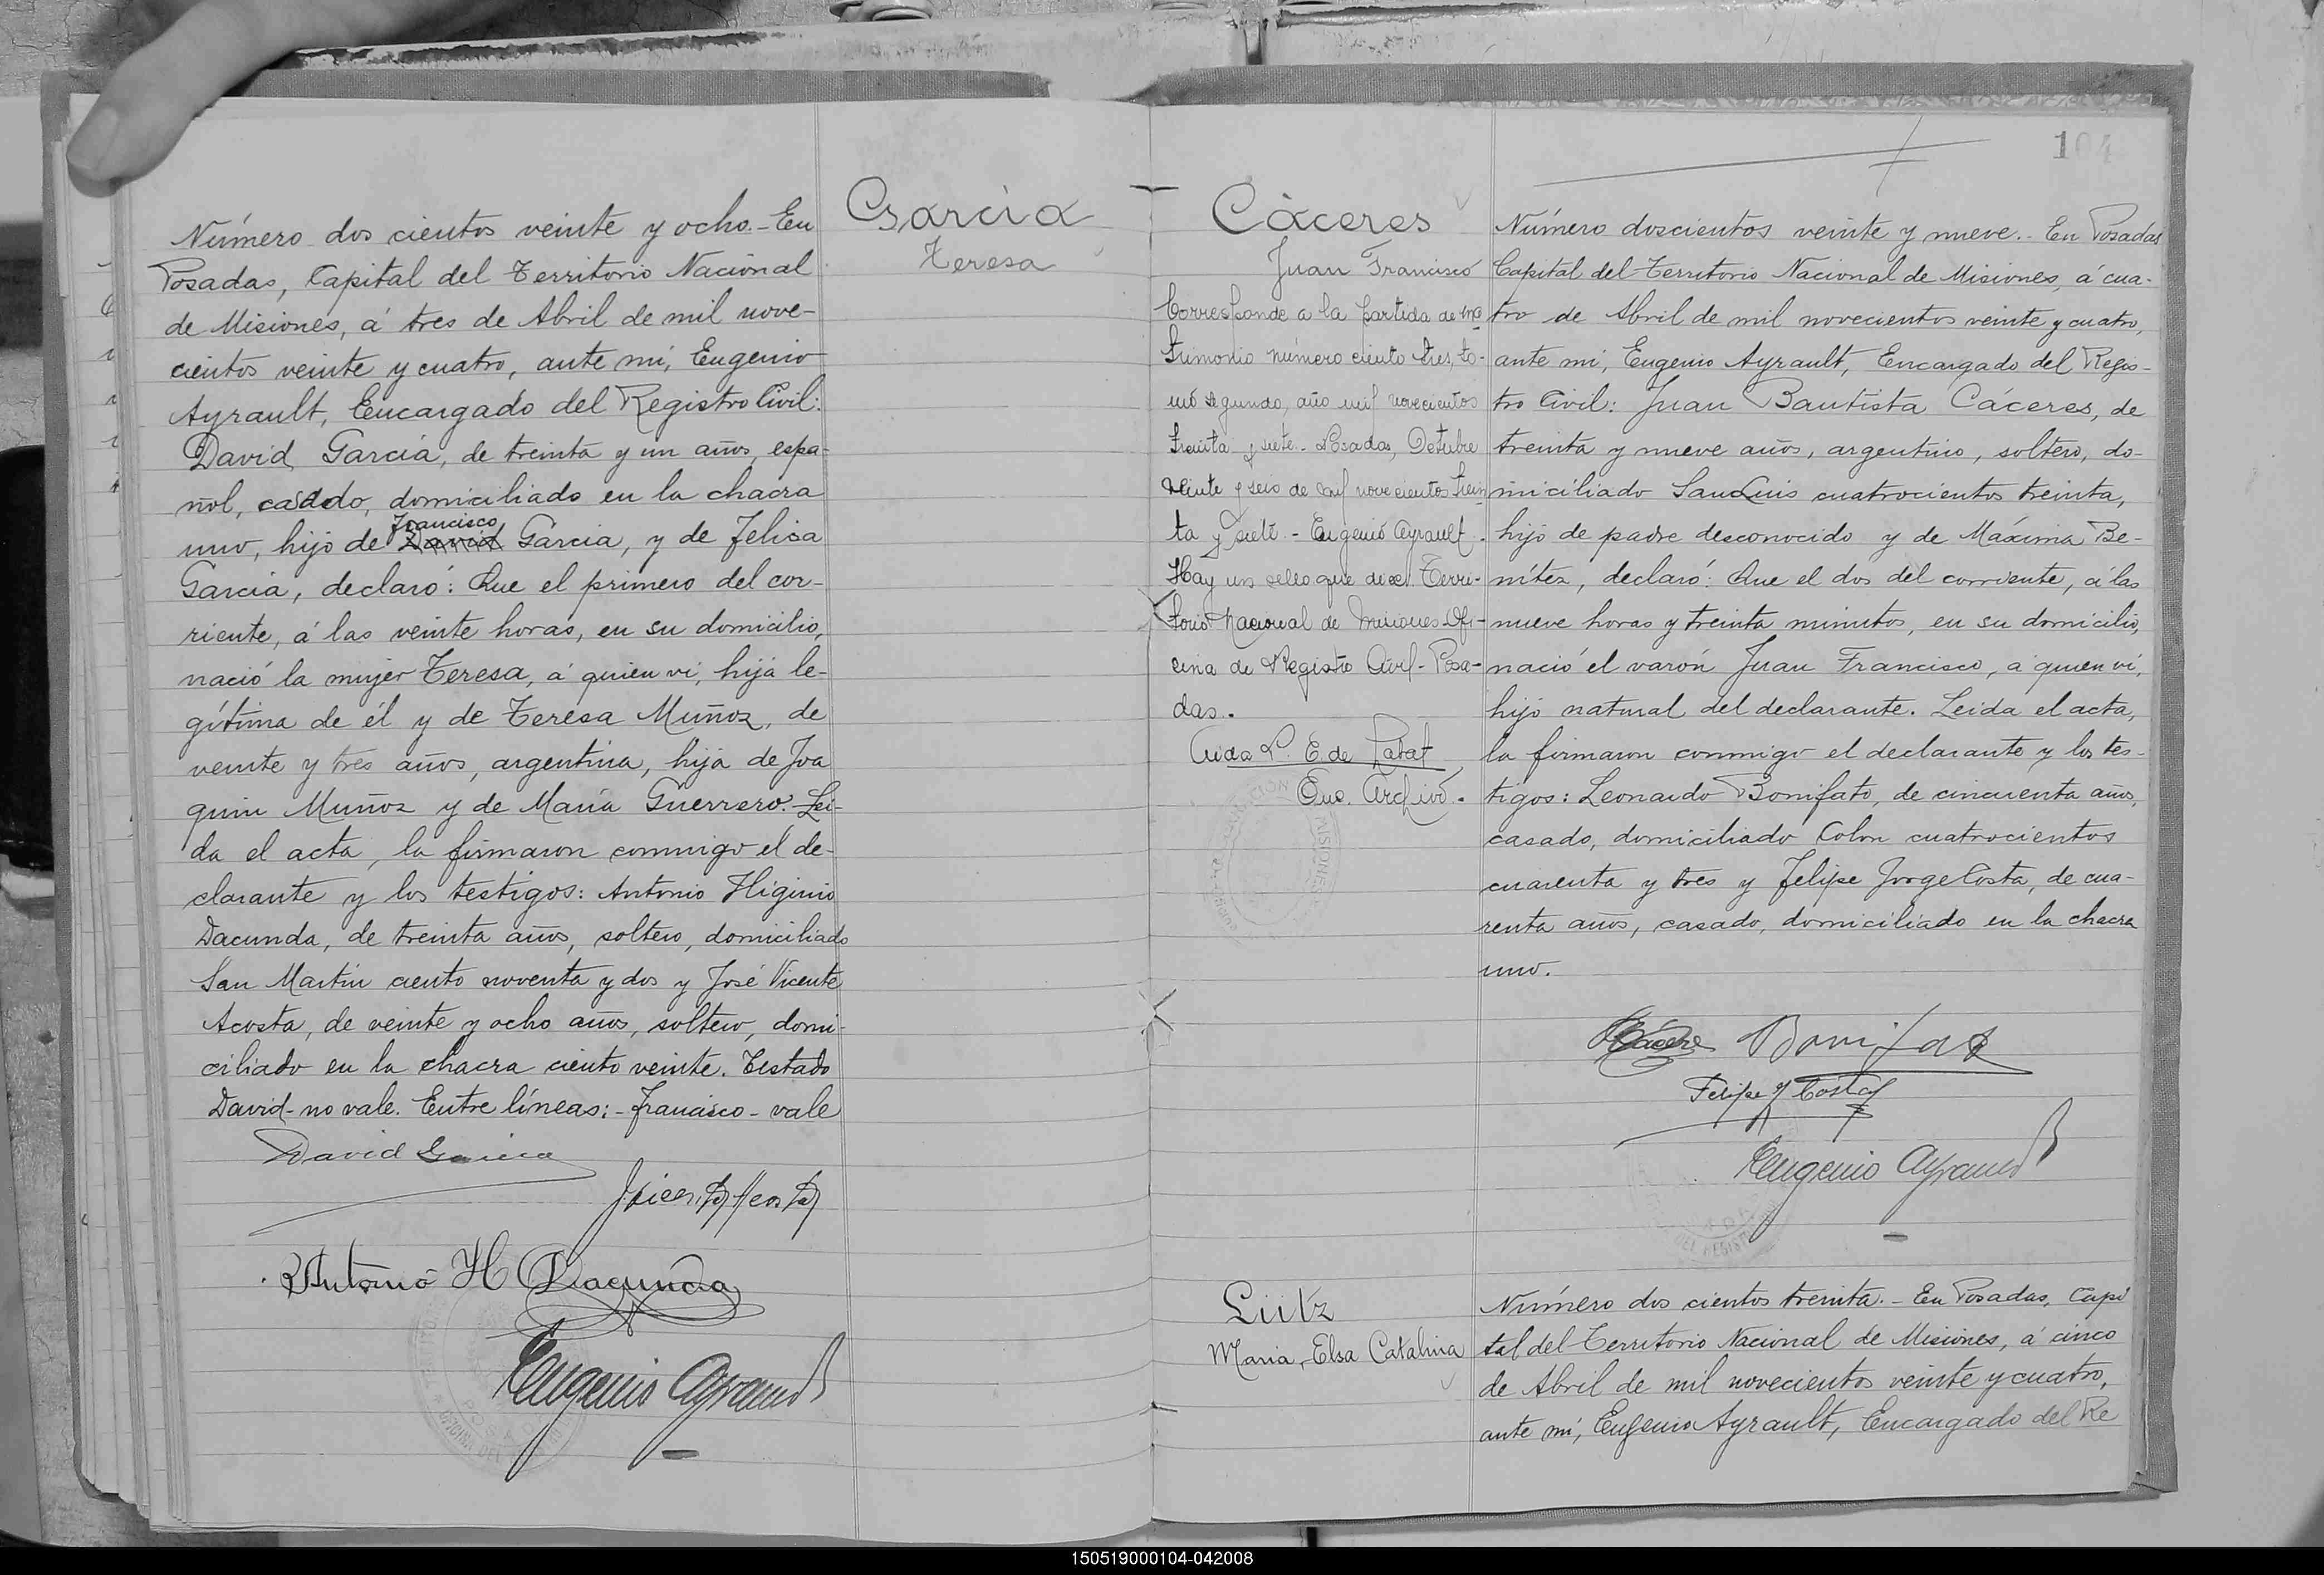 Número dos cientos veinte y ocho.- En
Posadas, Capital del Territorio Nacional
de Misiones, á tres de Abril de mil nove-
cientos veinte y cuatro, ante mi, Eugenio
Ayrault, Encargado del Registro Civil:
David García, de treinta y un años, espa-
ñol, casado, domiciliado en la chacra
Francisco
uno, hijo de David García, y de Felisa
García, declaró: Que el primero del cor-
riente, á las veinte horas, en su domicilio,
nació la mujer Teresa, á quien vi, hija le-
gítima de él y de Teresa Muñoz, de
veinte y tres años, argentina, hija de Joa
quin Muñoz y de María Guerrero.- Lei-
da el acta, la firmaron conmigo el de-
clarante y los testigos: Antonio Higinio
Dacunda, de treinta años, soltero, domiciliado
San Martin ciento noventa y dos y José Vicente
Acosta, de veinte y ocho años, soltero, domi-
ciliado en la chacra ciento veinte. Testado
David- no vale. Entre líneas:- Francisco - vale
David Garcia
Antonio H Dacunda
Eugenio Ayrault
García
Teresa
Cáceres
Juan Francisco
Corresponde a la partida de ma
trimonio número ciento tres, to-
mo segundo, año mil novecientos
treinta y siete.- Posadas, Octubre
veinte y seis de mil novecientos trein
ta y siete - Eugenio Ayrault.
Hay un sello que dice: Terri-
torio Nacional de Misiones Ofi-
cina de Registro Civil- Posa-
das.
104
Número doscientos veinte y nueve.- En Posadas
Capital del Territorio Nacional de Misiones, á cua-
tro de Abril de mil novecientos veinte y cuatro,
ante mi, Eugenio Ayrault, Encargado del Regis-
tro Civil: Juan Bautista Cáceres, de
treinta y nueve años, argentino, soltero, do-
miciliado San Luis cuatrocientos treinta,
hijo de padre desconocido y de Máxima Be-
nítez, declaró: Que el dos del corriente, á las
nueve horas y treinta minutos, en su domicilio,
nació el varón Juan Francisco, á quien vi,
hijo natural del declarante. Leida el acta,
la firmaron conmigo el declarante y los tes-
tigos: Leonardo Bonifato, de cincuenta años,
casado, domiciliado Colon cuatrocientos
cuarenta y tres y Felipe Jorge Costa, de cua-
renta años, casado, domiciliado en la chacra
uno.
Felipe J Costa
Eugenio Ayrault
Lütz
Maria, Elsa Catalina
Número dos cientos treinta.- En Posadas, Capi
tal del Territorio Nacional de Misiones, á cinco
de Abril de mil novecientos veinte y cuatro,
ante mí, Eugenio Ayrault, Encargado del Re
150519000104-042008